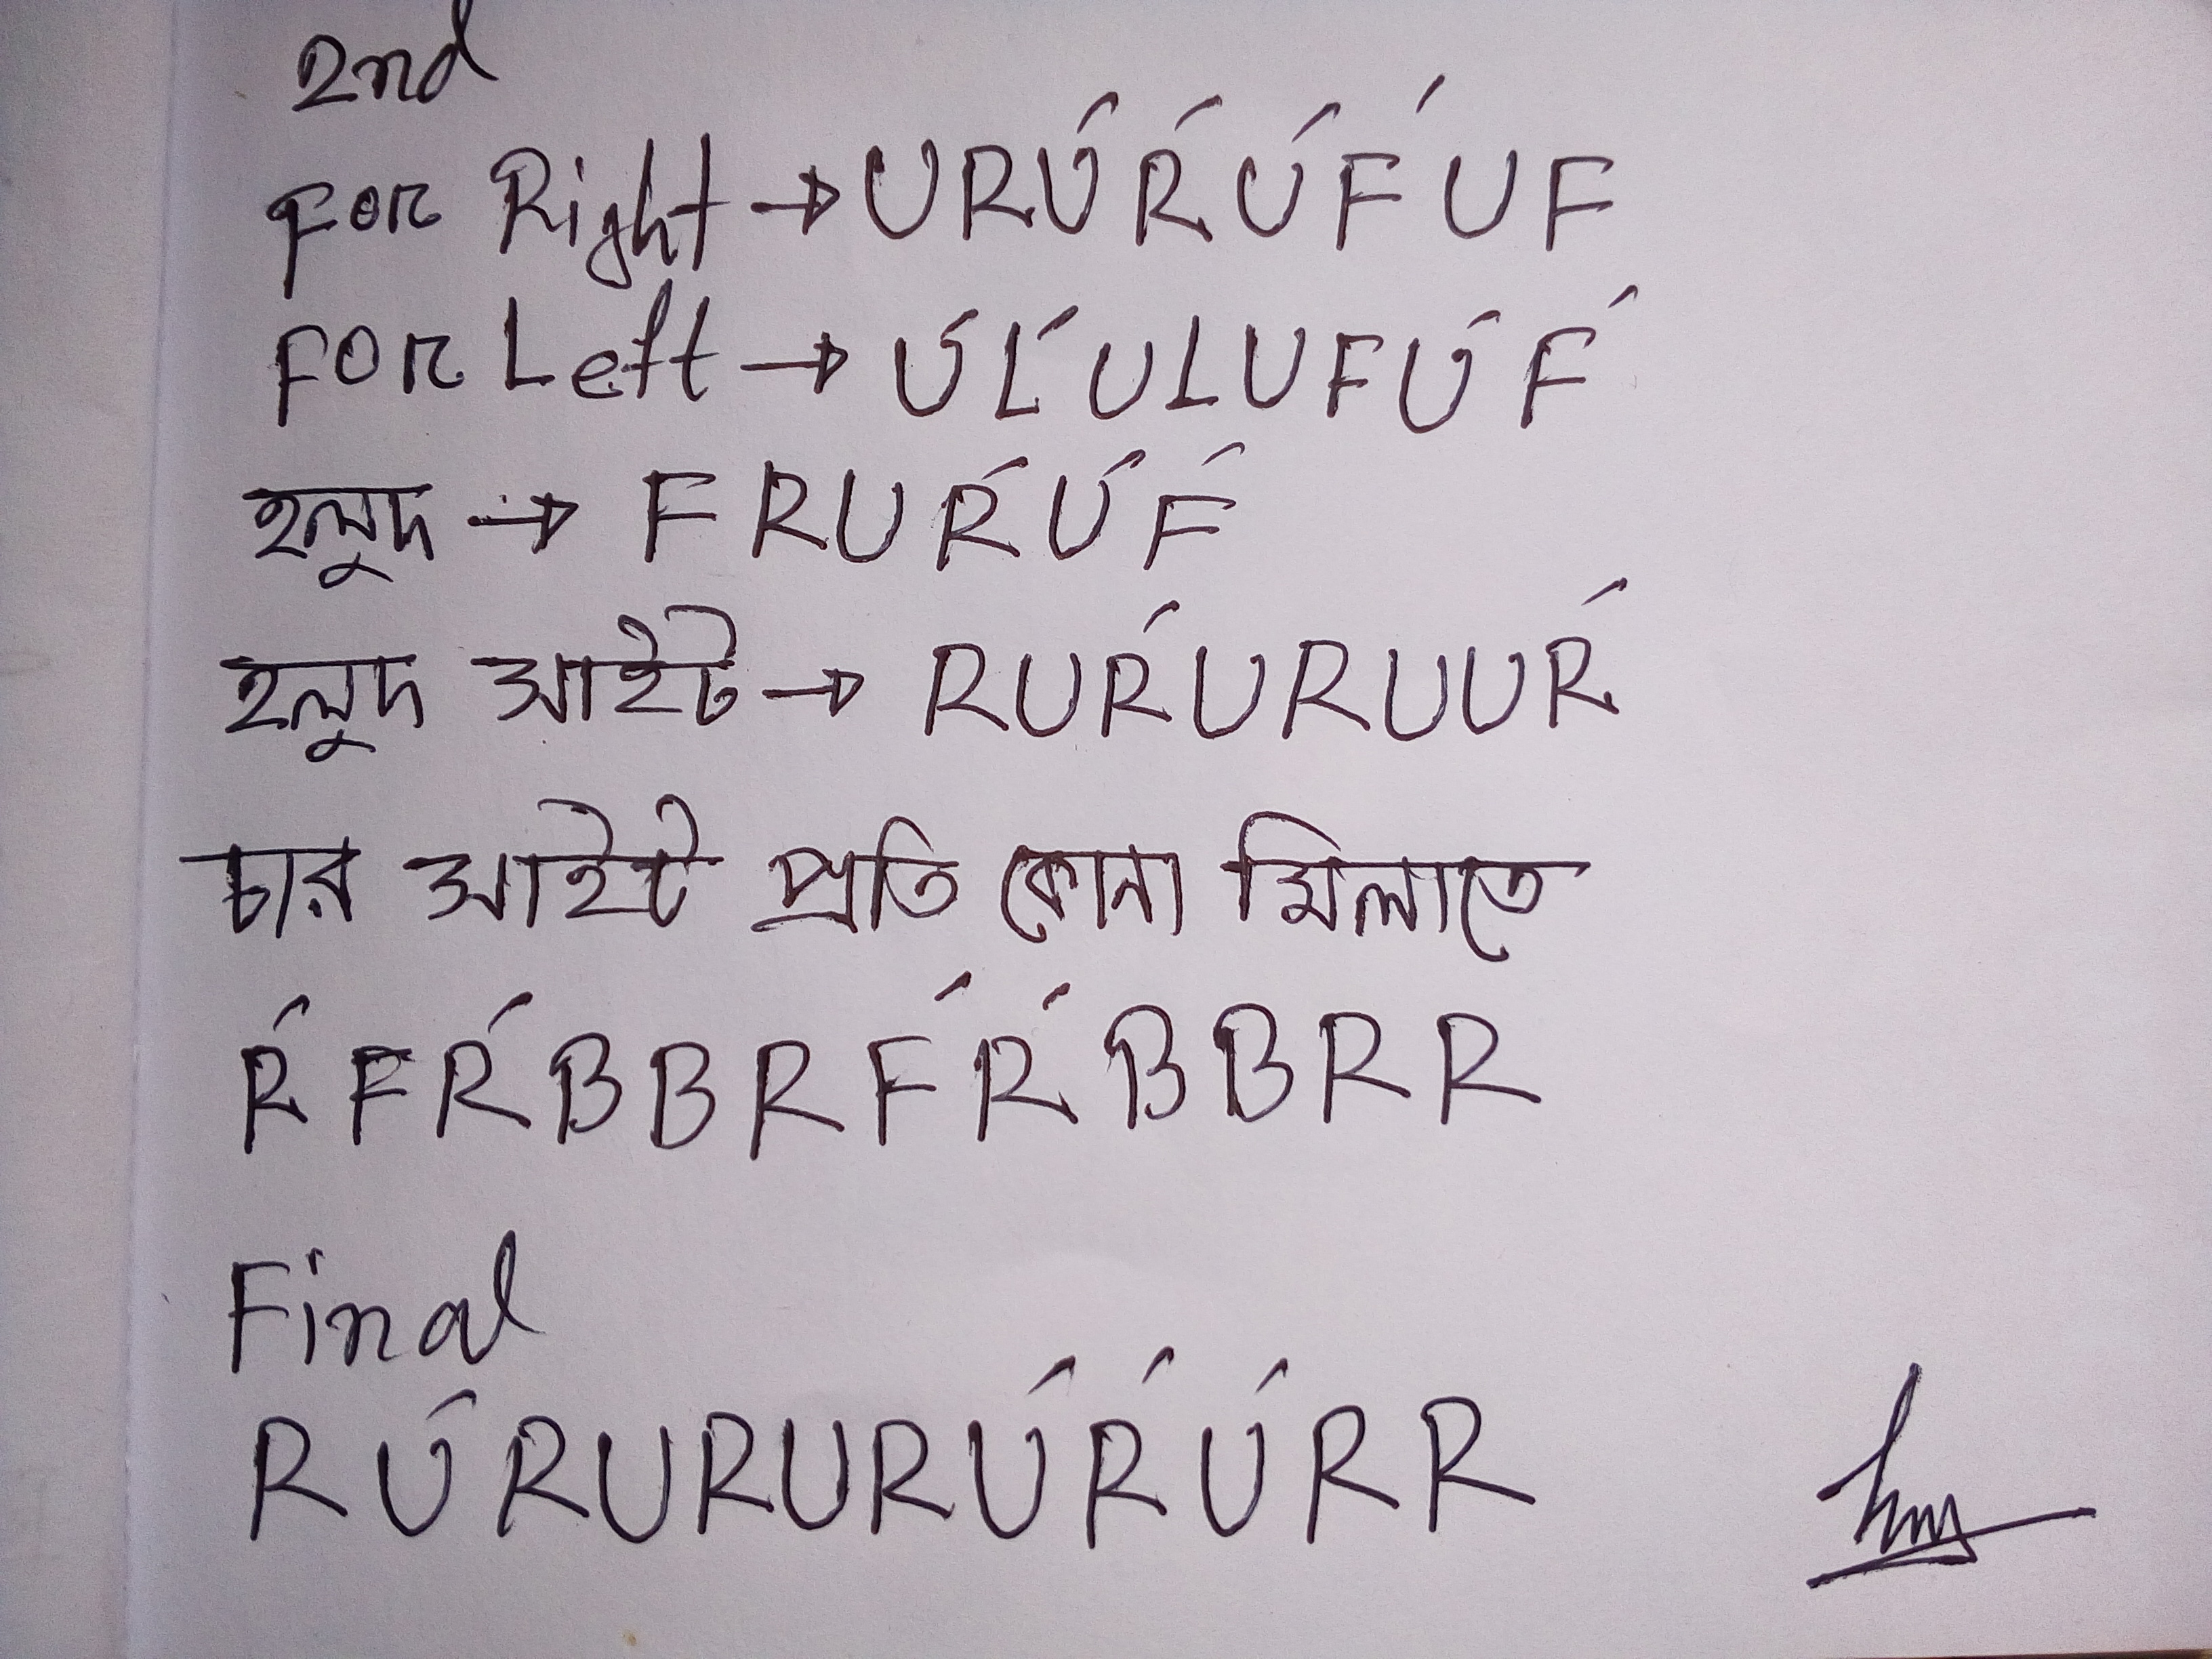 2nd
For Right → U R U' R' U' F' U F
For Left → U' L' U L U F U' F'
হলুদ → F R U R' U' F'
হলুদ সাইট → R U R' U R U U R'
চার সাইট প্রতি কোনা মিলাতে
R' F R' B B R F' R' B B R R
Final
R U' R U R U R U' R' U' R R